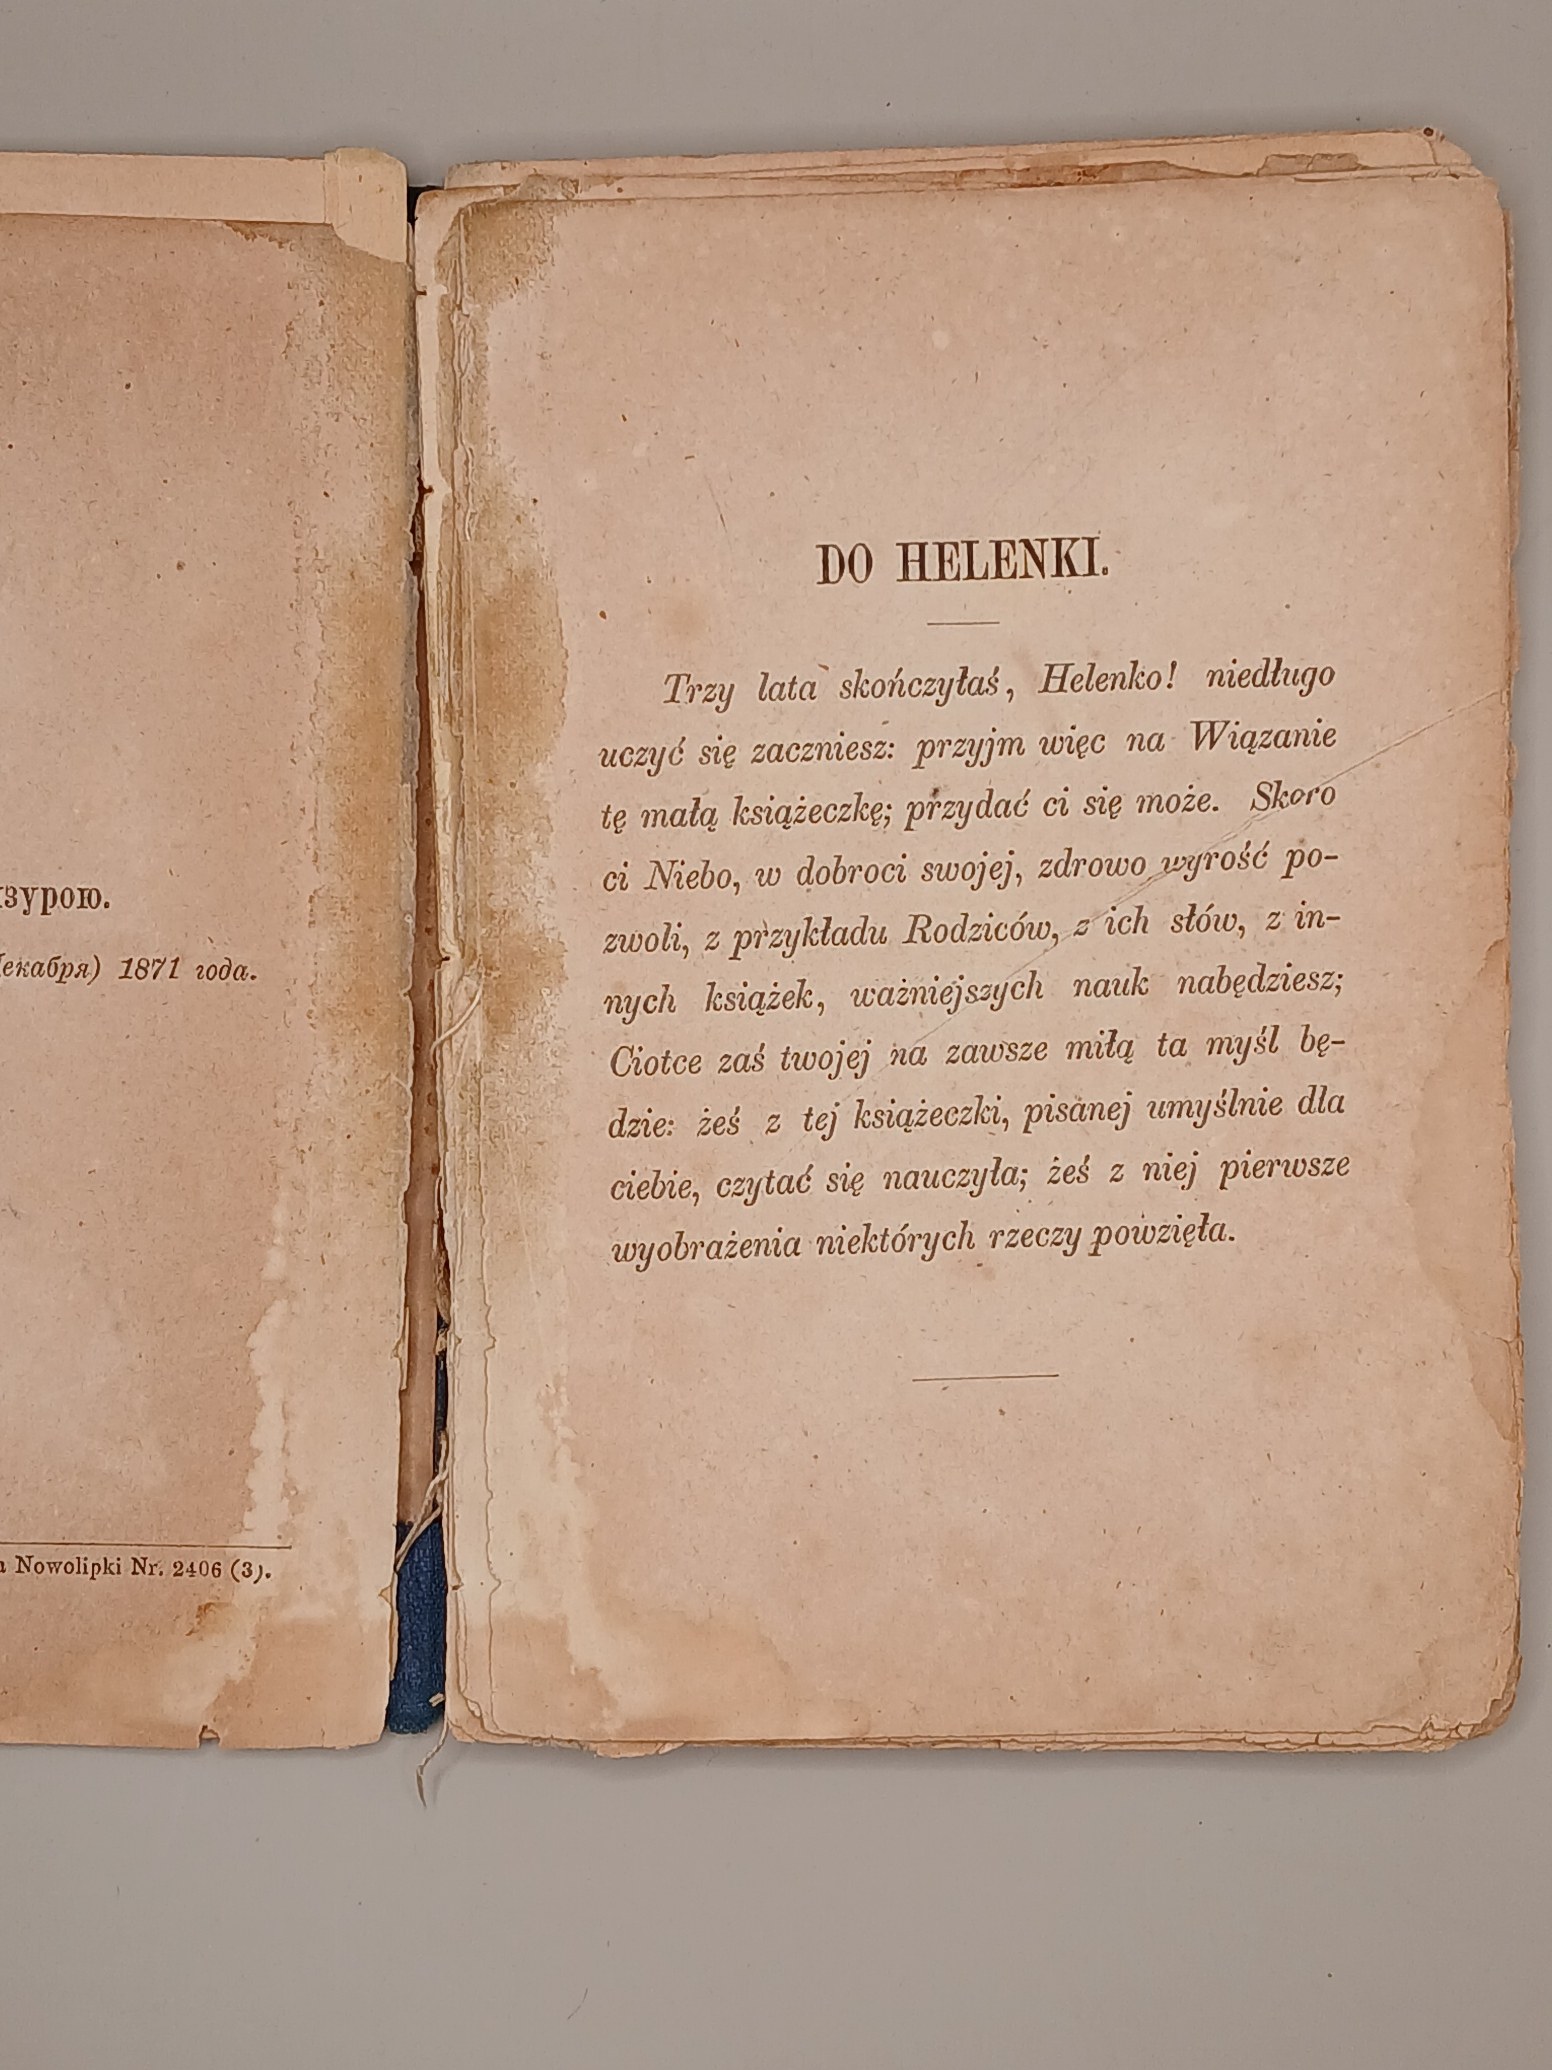 зурою.
екабря) 1871 года.
Nowolipki Nr. 2406 (3).
DO HELENKI.
Trzy lata skończyłaś, Helenko! niedługo
uczyć się zaczniesz: przyjm więc na Wiązanie
tę małą książeczkę; przydać ci się może. Skoro
ci Niebo, w dobroci swojej, zdrowo wyrość po-
zwoli, z przykładu Rodziców, z ich słów, z in-
nych książek, ważniejszych nauk nabędziesz;
Ciotce zaś twojej na zawsze miłą ta myśl bę-
dzie: żeś z tej książeczki, pisanej umyślnie dla
ciebie, czytać się nauczyła; żeś z niej pierwsze
wyobrażenia niektórych rzeczy powzięła.